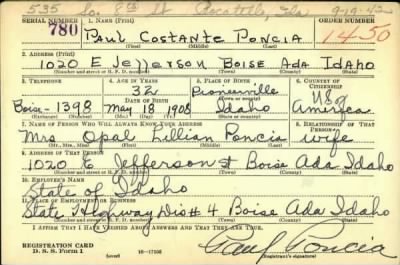 535 So. 8th St Pocatello, Ida. 9-19-42
SERIAL NUMBER 1. NAME (Print) ORDER NUMBER
780 Paul Costante Poncia 1450
(First) (Middle) (Last)
2. ADDRESS (Print)
1020 E Jefferson Boise Ada Idaho
(Number and street or R. F. D. number) (Town) (County) (State)
3. TELEPHONE 4. AGE IN YEARS 5. PLACE OF BIRTH 6. COUNTRY OF CITIZENSHIP
32 Pioneerville U S of
DATE OF BIRTH (Town or county)
Boise-1398 May 18 1908 Idaho America
(Exchange) (Number) (Mo.) (Day) (Yr.) (State or country)
7. NAME OF PERSON WHO WILL ALWAYS KNOW YOUR ADDRESS 8. RELATIONSHIP OF THAT PERSON
Mrs Opal Lillian Poncia wife
(Mr., Mrs., Miss) (First) (Middle) (Last)
9. ADDRESS OF THAT PERSON
1020 E Jefferson St Boise Ada Idaho
(Number and street or R. F. D. number) (Town) (County) (State)
10. EMPLOYER'S NAME
State of Idaho
11. PLACE OF EMPLOYMENT OR BUSINESS
State Highway Dis # 4 Boise Ada Idaho
(Number and street or R. F. D. number) (Town) (County) (State)
I AFFIRM THAT I HAVE VERIFIED ABOVE ANSWERS AND THAT THEY ARE TRUE.
REGISTRATION CARD
D. S. S. Form 1 (over) 16-17105 Paul Poncia
(Registrant's signature)